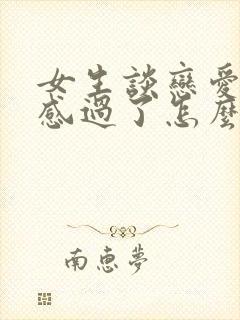 女生談戀愛
感過了怎麼
南恵夢